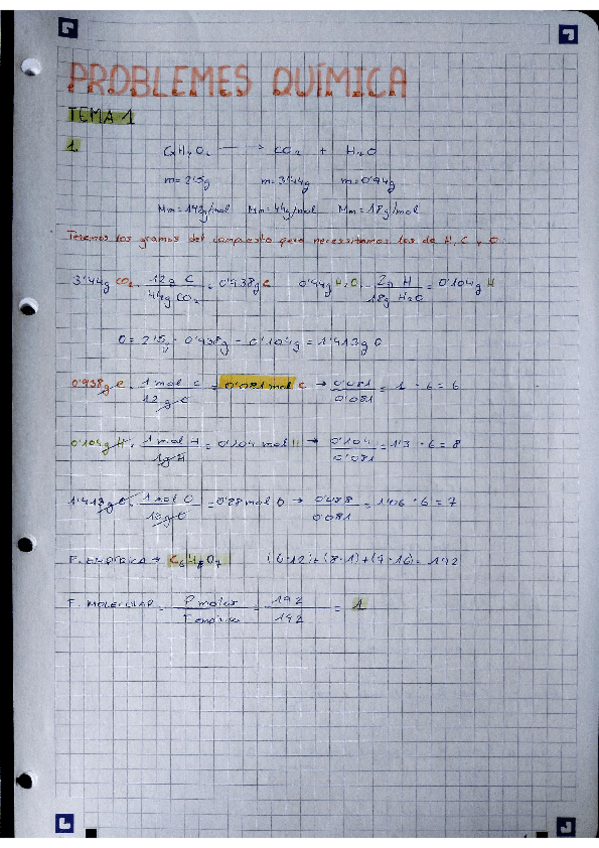 PROBLEMES QUÍMICA
TEMA 1
1. CxHyOz → CO2 + H2O
m=2'5g m=3'44g m=0'94g
Mm=192g/mol Mm=44g/mol Mm=18g/mol
Tenemos los gramos del compuesto pero necessitamos los de H, C y O.
3'44g CO2 · 12g C / 44g CO2 = 0'938g C 0'94g H2O · 2g H / 18g H2O = 0'104g H
O = 2'5g - 0'938g - 0'104g = 1'413g O
0'938g C · 1 mol C / 12g C = 0'081 mol C → 0'081 / 0'081 = 1 · 6 = 6
0'104g H · 1 mol H / 1g H = 0'104 mol H → 0'104 / 0'081 = 1'3 · 6 = 8
1'413g O · 1 mol O / 16g O = 0'88 mol O → 0'088 / 0'081 = 1'06 · 6 = 7
F. EMPÍRICA → C6H8O7 (6·12)+(8·1)+(7·16)= 192
F. MOLECULAR = P molec / F empírica = 192 / 192 = 1